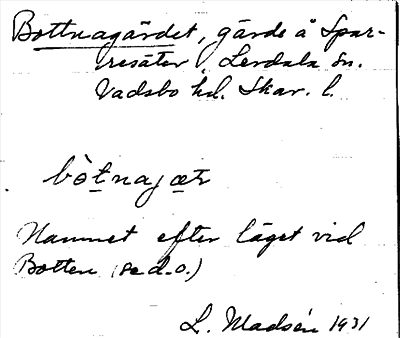 Bottnagärdet, gärde å Spar-
resäter, Lerdala sn.
Vadsbo hd. Skar. l.
bòtnajær
Namnet efter läget vid
Botten (se d.o.)
L. Madsén 1931